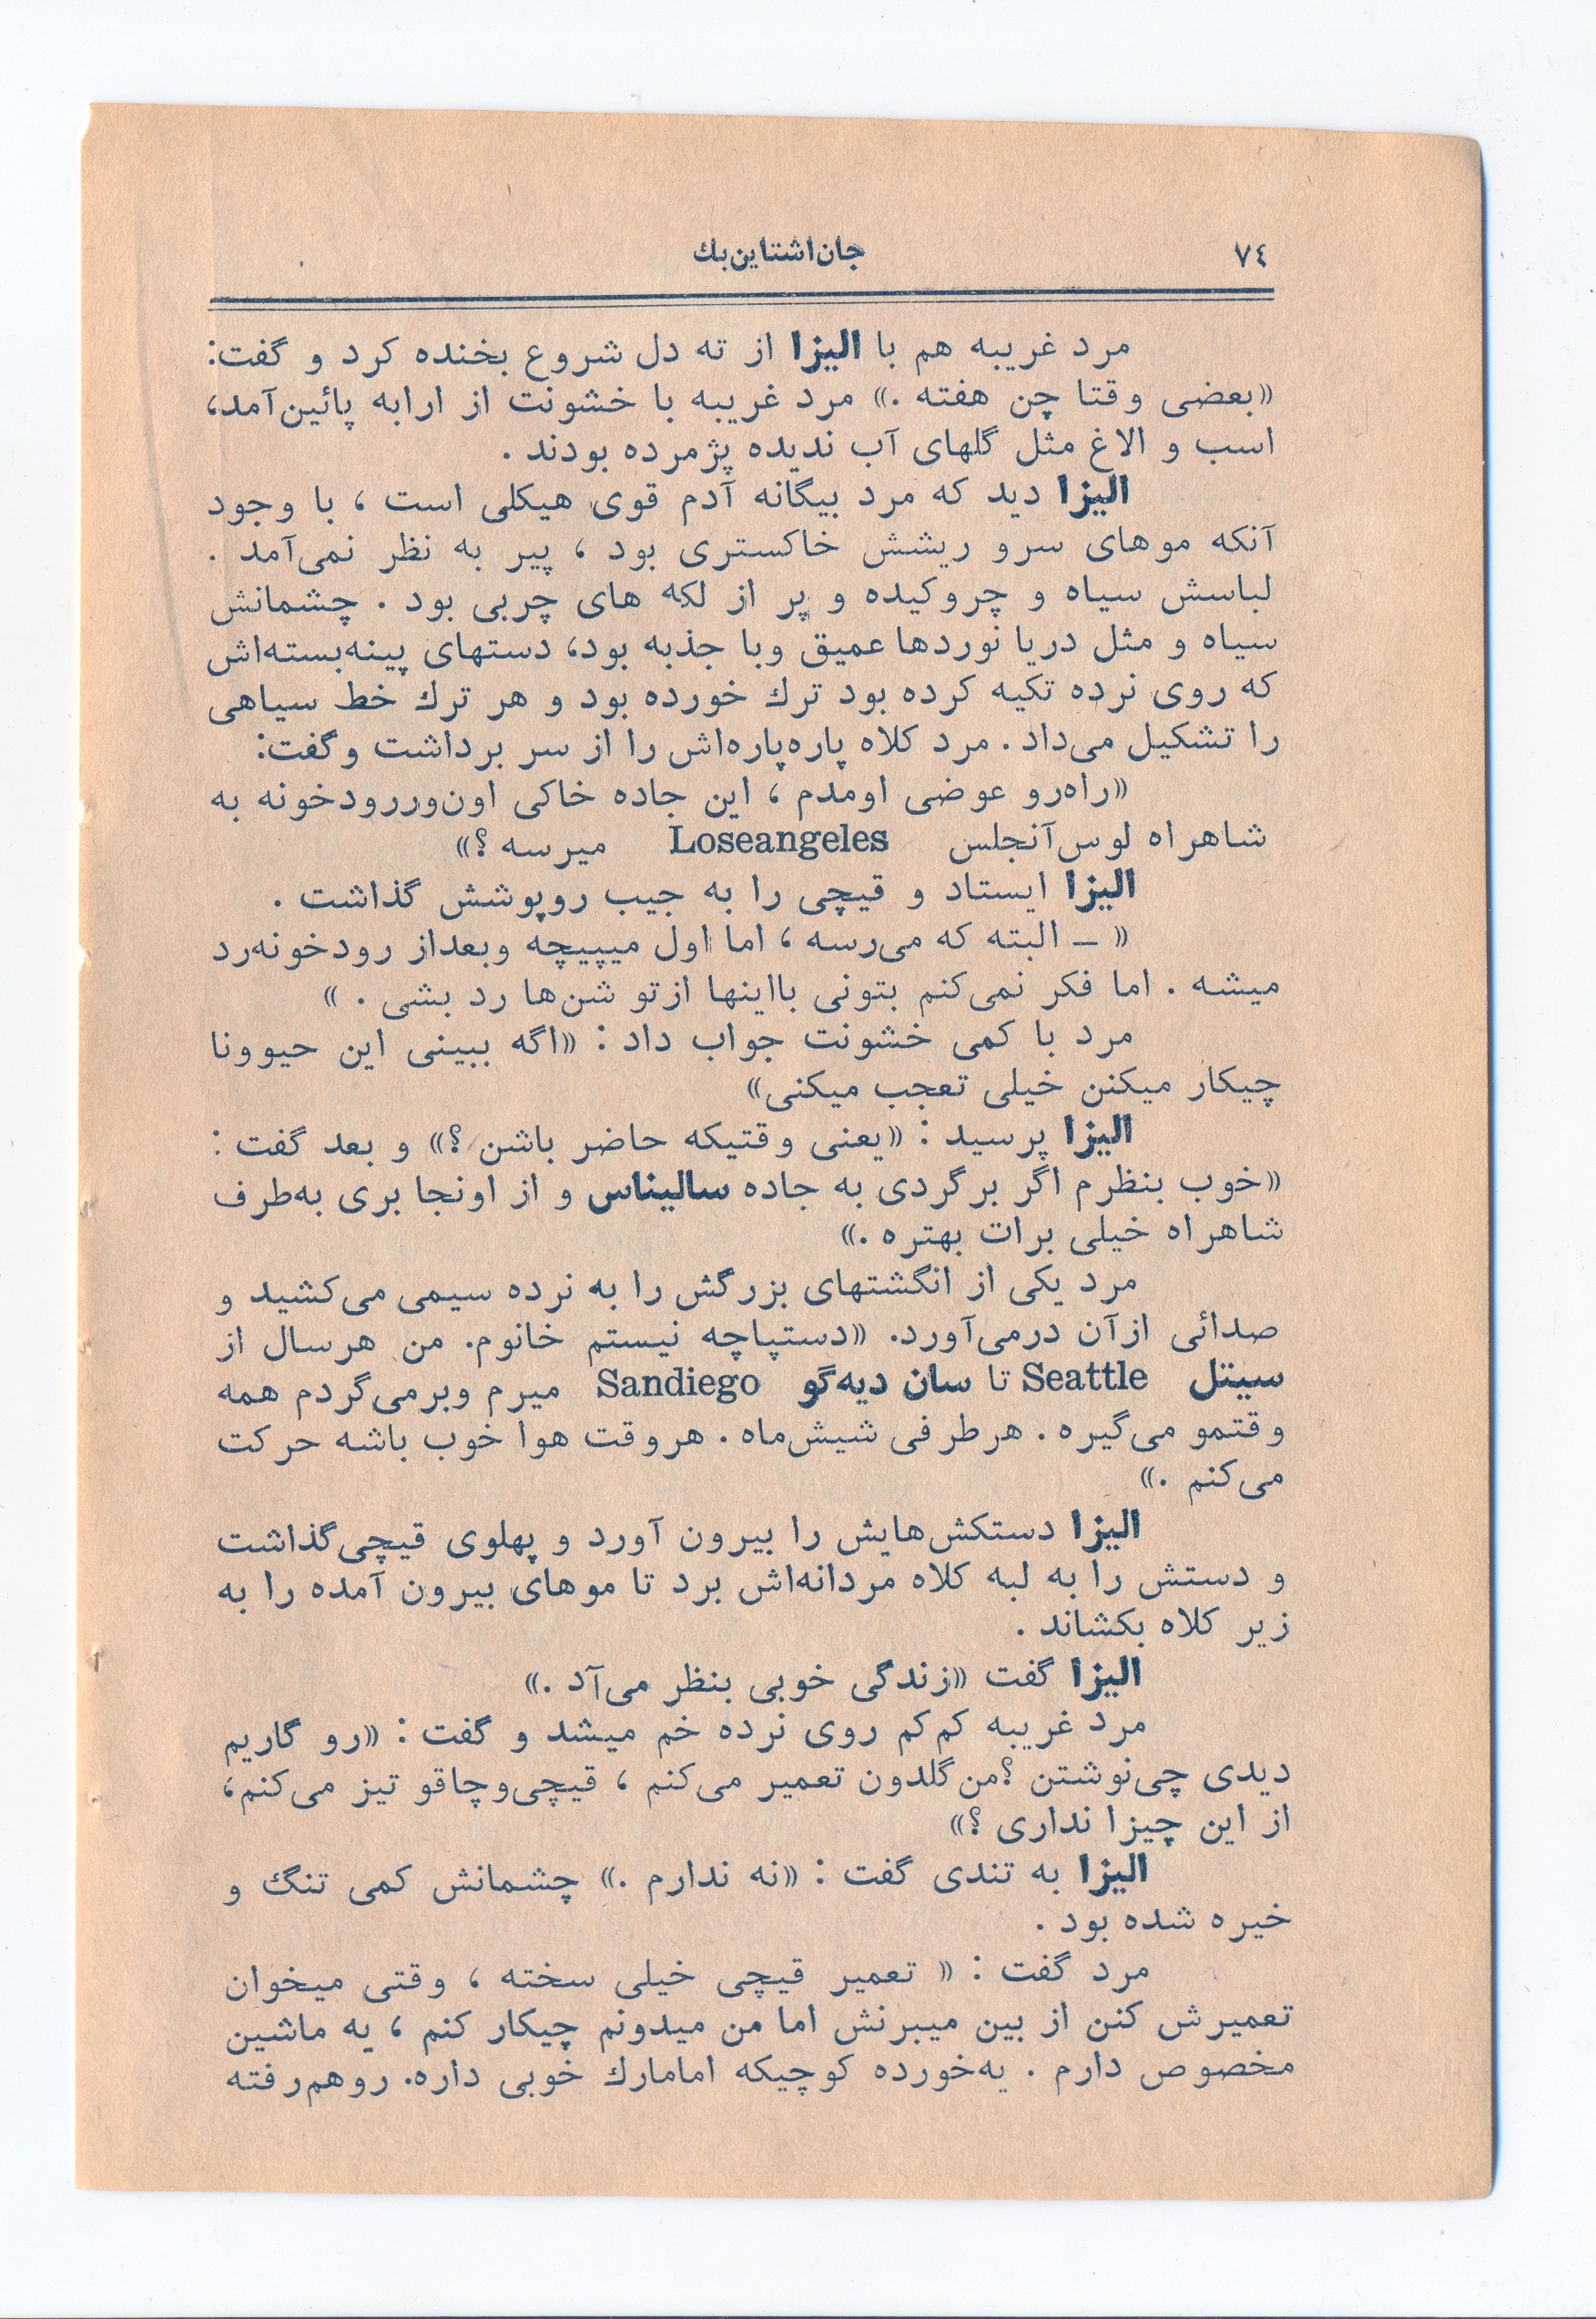 ٧٤
جان‌اشتاین‌بك
مرد غریبه هم با الیزا از ته دل شروع بخنده کرد و گفت:
«بعضی وقتا چن هفته .» مرد غریبه با خشونت از ارابه پائین‌آمد،
اسب و الاغ مثل گلهای آب ندیده پژمرده بودند .
الیزا دید که مرد بیگانه آدم قوی هیکلی است ، با وجود
آنکه موهای سرو ریشش خاکستری بود ، پیر به نظر نمی‌آمد .
لباسش سیاه و چروکیده و پر از لکه های چربی بود . چشمانش
سیاه و مثل دریا نوردها عمیق وبا جذبه بود، دستهای پینه‌بسته‌اش
که روی نرده تکیه کرده بود ترك خورده بود و هر ترك خط سیاهی
را تشکیل می‌داد . مرد کلاه پاره‌پاره‌اش را از سر برداشت وگفت:
«راه‌رو عوضی اومدم ، این جاده خاکی اون‌وررودخونه به
شاهراه لوس‌آنجلس Loseangeles میرسه ؟»
الیزا ایستاد و قیچی را به جیب روپوشش گذاشت .
« ــ البته که می‌رسه ، اما اول میپیچه وبعداز رودخونه‌رد
میشه . اما فکر نمی‌کنم بتونی بااینها ازتو شن‌ها رد بشی . »
مرد با کمی خشونت جواب داد : «اگه ببینی این حیوونا
چیکار میکنن خیلی تعجب میکنی»
الیزا پرسید : «یعنی وقتیکه حاضر باشن ؟» و بعد گفت :
«خوب بنظرم اگر برگردی به جاده سالیناس و از اونجا بری به‌طرف
شاهراه خیلی برات بهتره .»
مرد یکی از انگشتهای بزرگش را به نرده سیمی می‌کشید و
صدائی ازآن درمی‌آورد. «دستپاچه نیستم خانوم. من هرسال از
سیتل Seattle تا سان دیه‌گو Sandiego میرم وبرمی‌گردم همه
وقتمو می‌گیره . هرطرفی شیش‌ماه . هروقت هوا خوب باشه حرکت
می‌کنم .»
الیزا دستکش‌هایش را بیرون آورد و پهلوی قیچی‌گذاشت
و دستش را به لبه کلاه مردانه‌اش برد تا موهای بیرون آمده را به
زیر کلاه بکشاند .
الیزا گفت «زندگی خوبی بنظر می‌آد .»
مرد غریبه کم‌کم روی نرده خم میشد و گفت : «رو گاریم
دیدی چی‌نوشتن ؟من‌گلدون تعمیر می‌کنم ، قیچی‌وچاقو تیز می‌کنم،
از این چیزا نداری ؟»
الیزا به تندی گفت : «نه ندارم .» چشمانش کمی تنگ و
خیره شده بود .
مرد گفت : « تعمیر قیچی خیلی سخته ، وقتی میخوان
تعمیرش کنن از بین میبرنش اما من میدونم چیکار کنم ، یه ماشین
مخصوص دارم . یه‌خورده کوچیکه امامارك خوبی داره. روهم‌رفته